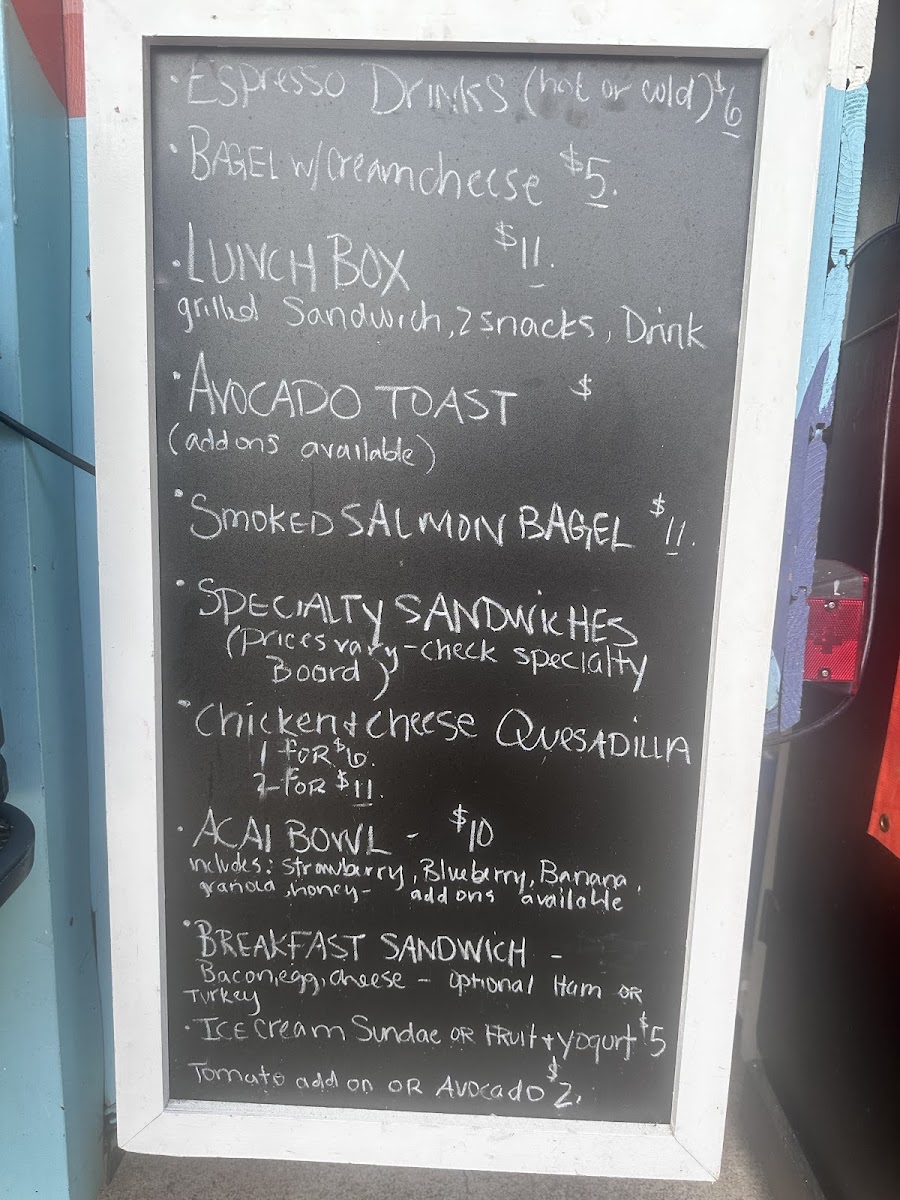 · Espresso Drinks (hot or cold) $6
· BAGEL w/ creamcheese $5.
· LUNCH BOX $11.
grilled Sandwich, 2 snacks, Drink
· AVOCADO TOAST $
(add ons available)
· SMOKED SALMON BAGEL $11.
· SPECIALTY SANDWICHES
(Prices vary - check specialty
Board)
· Chicken + cheese QUESADILLA
1 FOR $6.
2 FOR $11.
· ACAI BOWL - $10
includes: strawberry, Blueberry, Banana,
granola, honey - add ons available
· BREAKFAST SANDWICH -
Bacon, egg, cheese - optional Ham OR
Turkey
· ICE cream Sundae OR FRUIT + yogurt $5
Tomato add on OR AVOCADO $2.